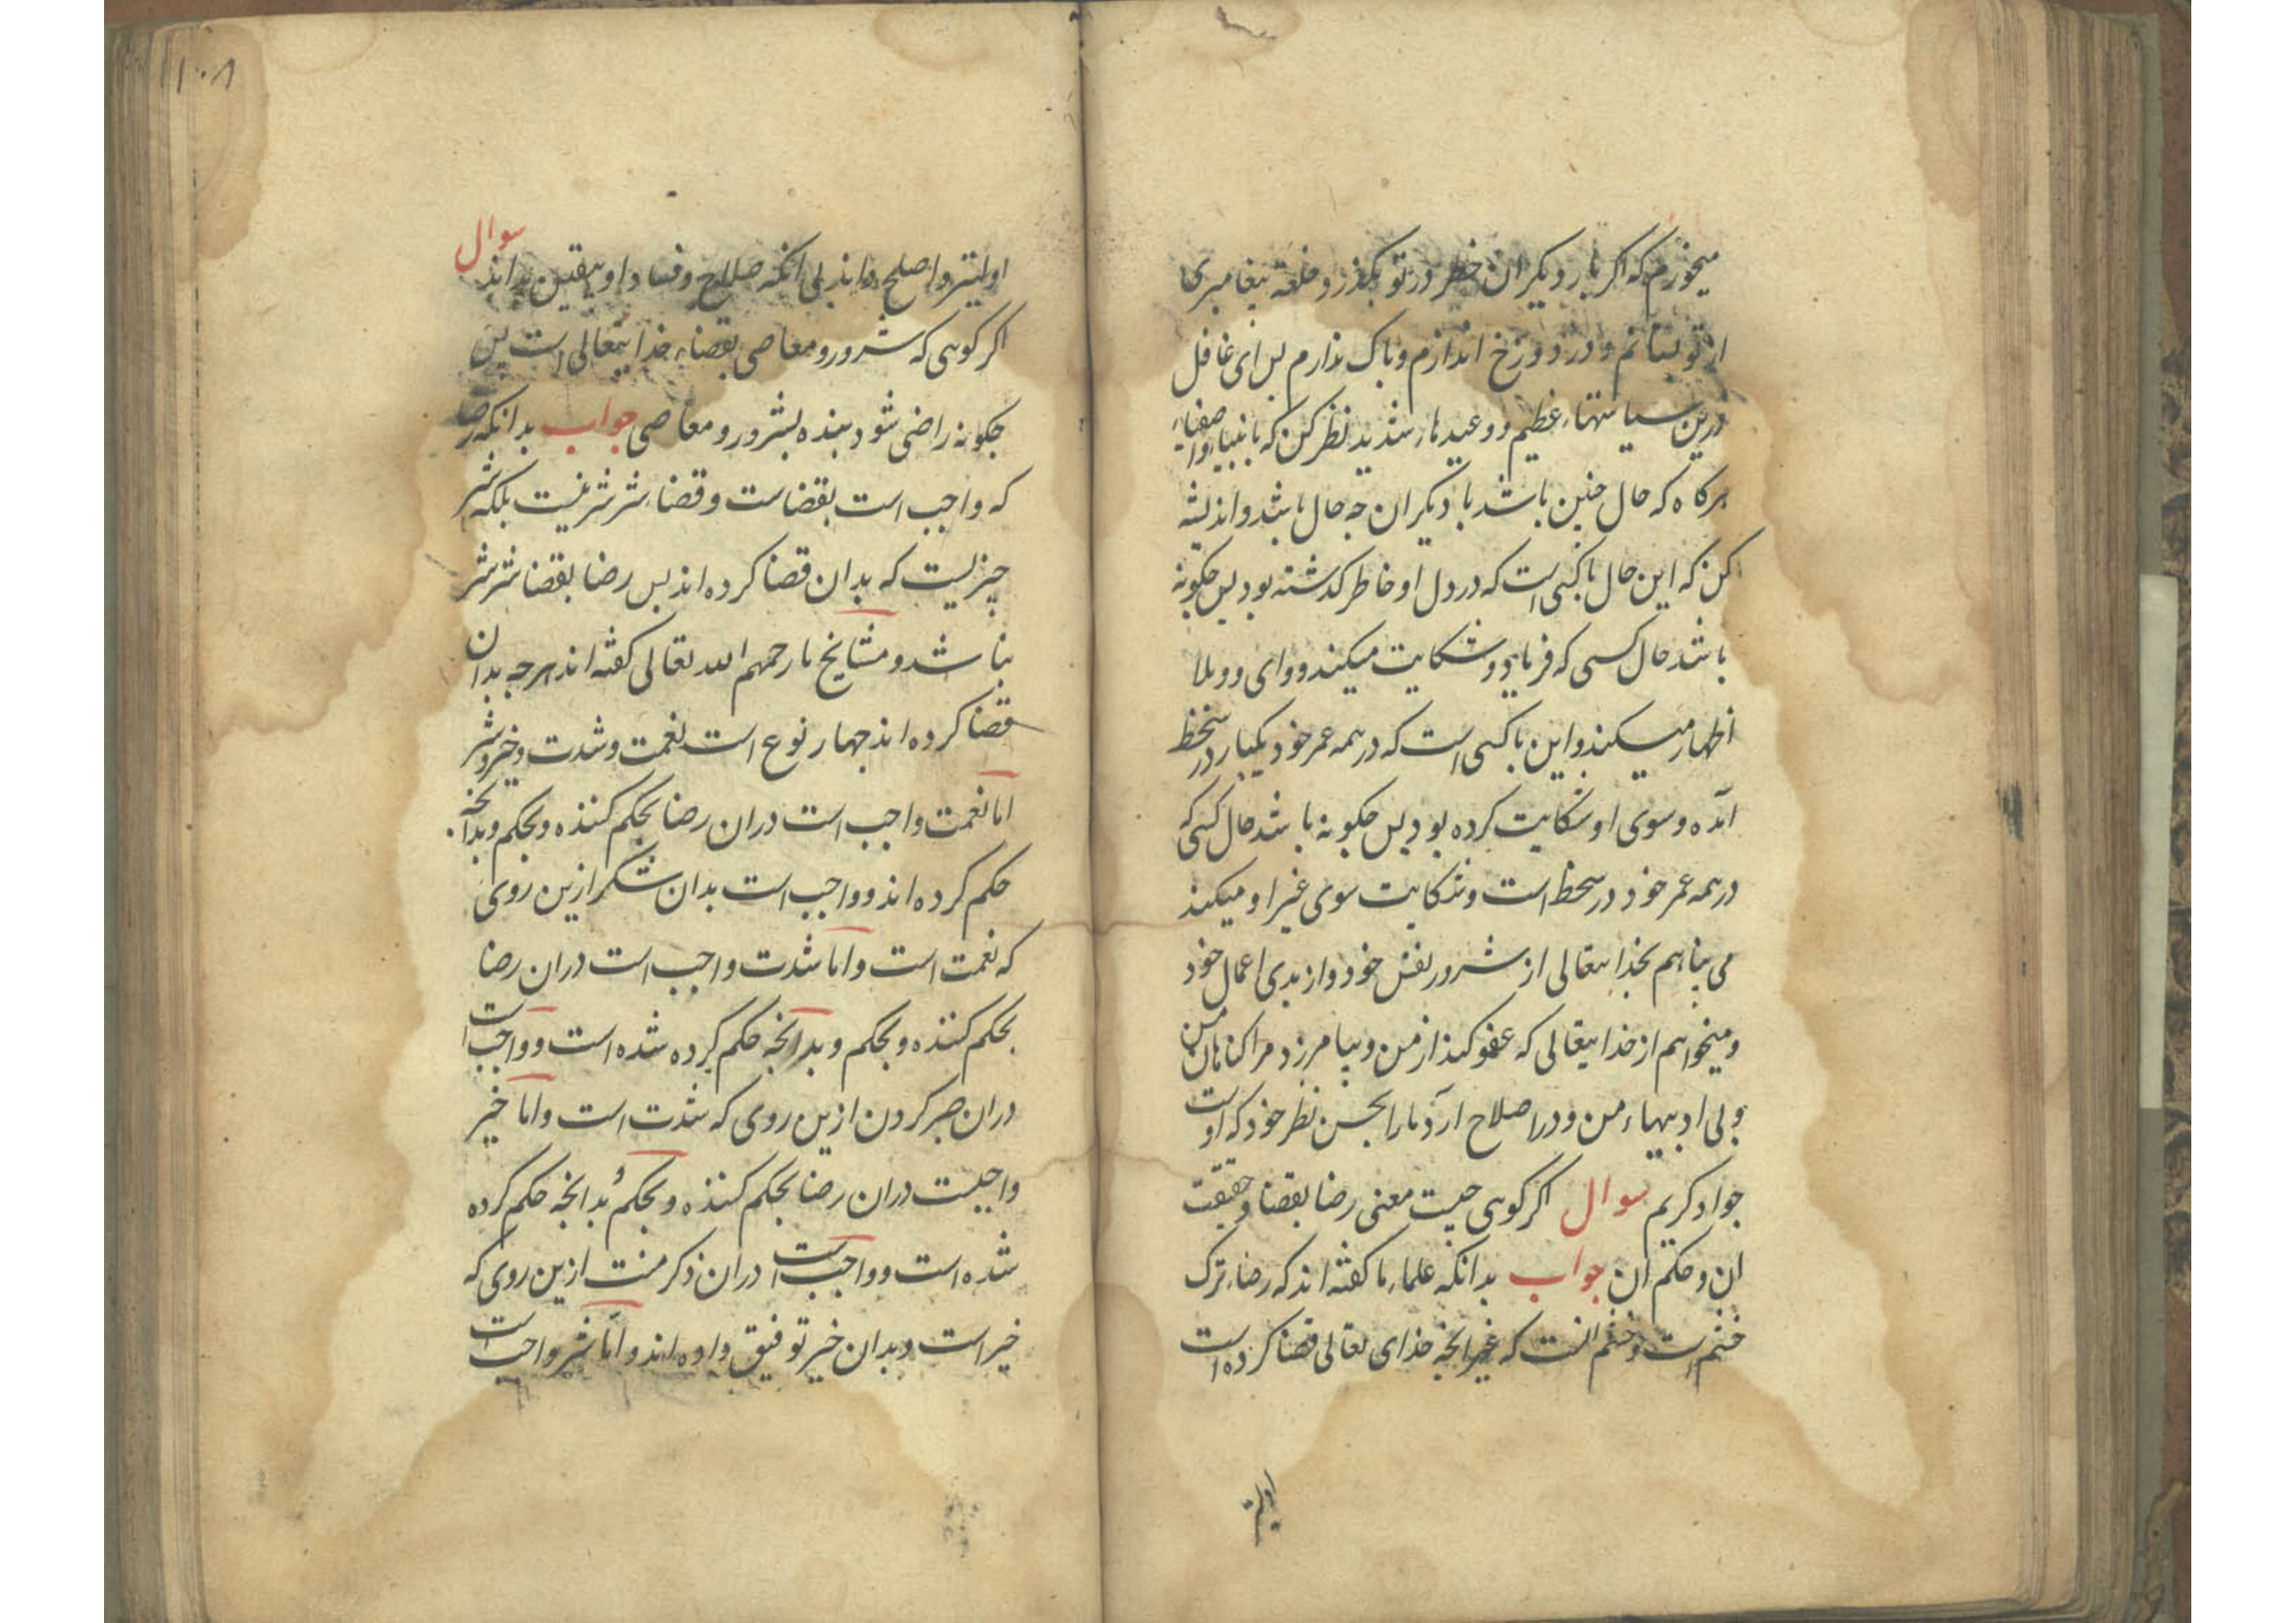 میخورم که اکر بار دیکر ان خطر در تو بکذرد خلعة پیغامبری
از تو بستانم و در دوزخ اندازم و باک ندارم بس ای غافل
درین سیاستهاء عظیم و وعیدهاء شدید نظر کن که با انبیا و اصفیاء
هرکاه که حال چنین باشد با دیکران چه حال باشد و اندیشه
کن که این حال با کسی است که در دل او خاطر کدشته بود بس چکونه
باشد حال کسی که فریاد و شکایت میکند و وای و ویلا
اظهار میکند و این با کسی است که در همه عمر خود یکبار در سخط
امده و سوی او شکایت کرده بود بس چکونه باشد حال کسی که
در همه عمر خود در سخط است و شکایت سوی غیر او میکند
می پناهم بخدایتعالی از شرور نفس خود و از بدی اعمال خود
و میخواهم از خدایتعالی که عفو کند از من و بیامرزد مرا کناهان من
و بی ادبیهاء من و در اصلاح ارد مارا بحسن نظر خود که او است
جواد کریم سوال اکر کوی چیست معنی رضا بقضا و حقیقت
ان و حکم ان جواب بدانکه علماء ما کفته اند که رضاء ترک
خشم است و خشم انست که غیر انچه خدای تعالی قضا کرده است
اولیتر
۱۰۸
اولیتر و اصلح داند بی انکه صلاح و فساد او بیقین بداند سوال
اکر کوی که شرور و معاصی بقضاء خدایتعالی است بس
چکونه راضی شود بنده بشرور و معاصی جواب بدانکه رضا
که واجب است بقضاست و قضاء شر شر نیست بلکه شر
چیزیست که بدان قضا کرده اند بس رضا بقضاء شر شر
نباشد و مشایخ ما رحمهم الله تعالی کفته اند هرچه بدان
قضا کرده اند چهار نوع است نعمت و شدت و خیر و شر
اما نعمت واجب است دران رضا بحکم کننده و بحکم و بدانچه
حکم کرده اند و واجب است بدان شکر ازین روی
که نعمت است و اما شدت واجب است دران رضا
بحکم کننده و بحکم و بدانچه حکم کرده شده است و واجب است
دران صبر کردن ازین روی که شدت است و اما خیر
واجبست دران رضا بحکم کننده و بحکم بدانچه حکم کرده
شده است و واجب است دران ذکر منت ازین روی که
خیر است و بدان خیر توفیق داده اند و اما شر واجب است